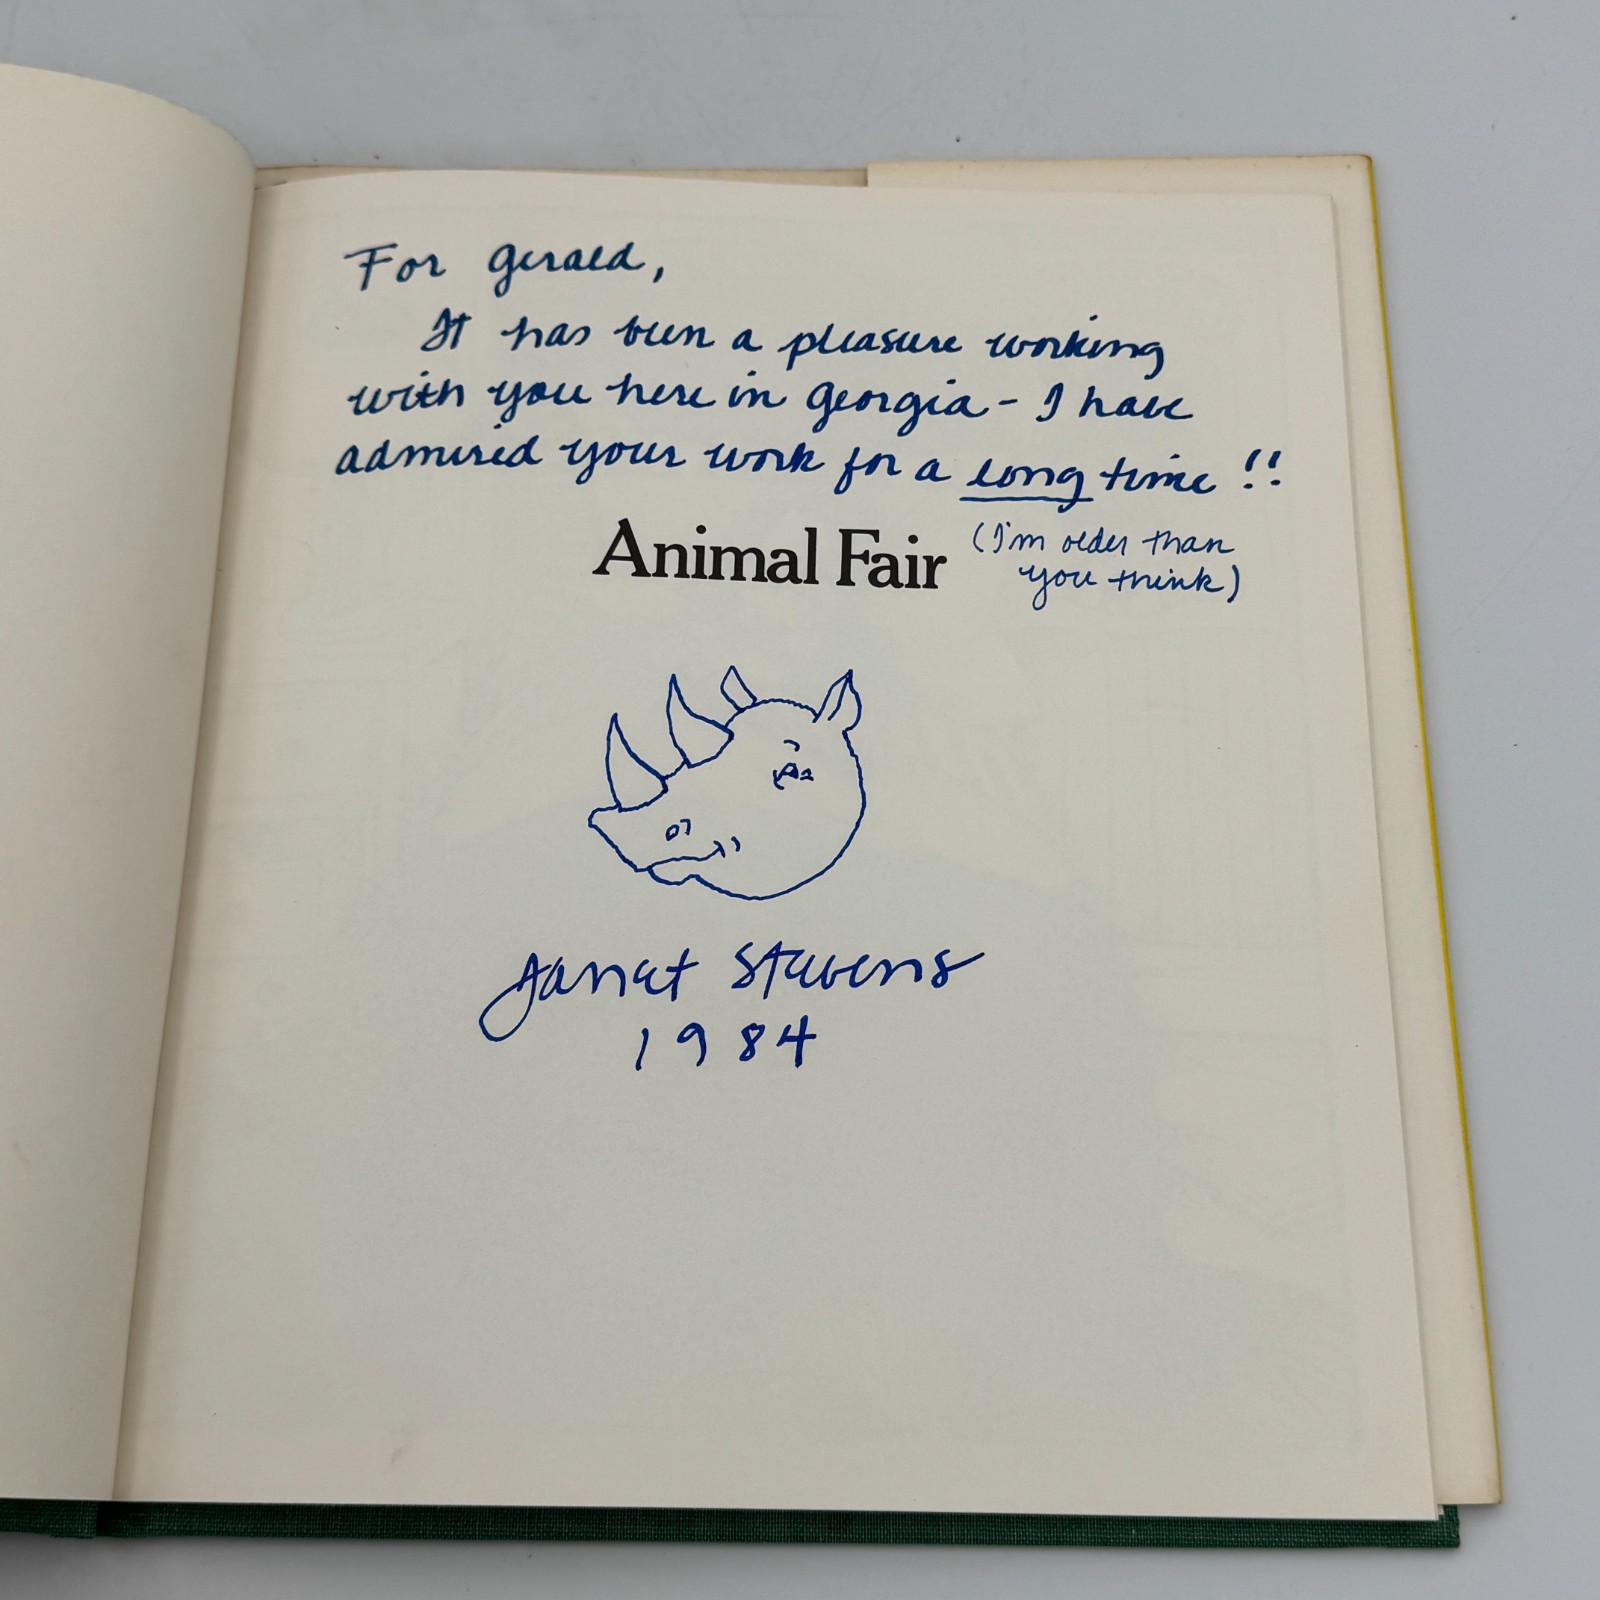 For Gerald,
It has been a pleasure working
with you here in Georgia - I have
admired your work for a long time !!
Animal Fair
(I'm older than
you think)
Janet Stevens
1984